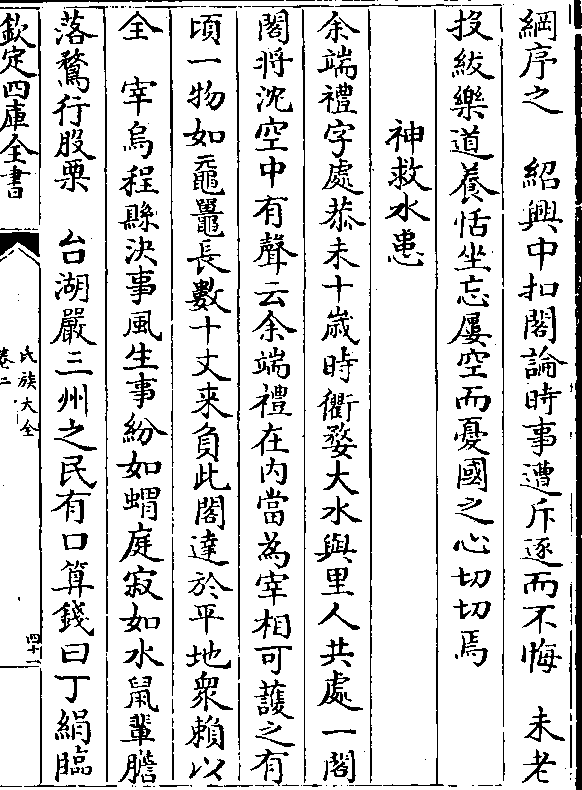 綱序之　紹興中扣閤論時事遭斥逐而不悔　未老
投紱樂道養恬坐忘屢空而憂國之心切切焉
神救水患
余端禮字處恭未十歳時衢婺大水與里人共處一閣
閣將沈空中有聲云余端禮在内當為宰相可䕶之有
頃一物如黿鼉長數十丈来負此閣達於平地衆頼以
全　宰烏程縣決事風生事紛如蝟庭寂如水鼠輩膽
落鶩行股栗　台湖嚴三州之民有口算錢曰丁絹臨
欽定四庫全書
氏族大全
卷二
四十二